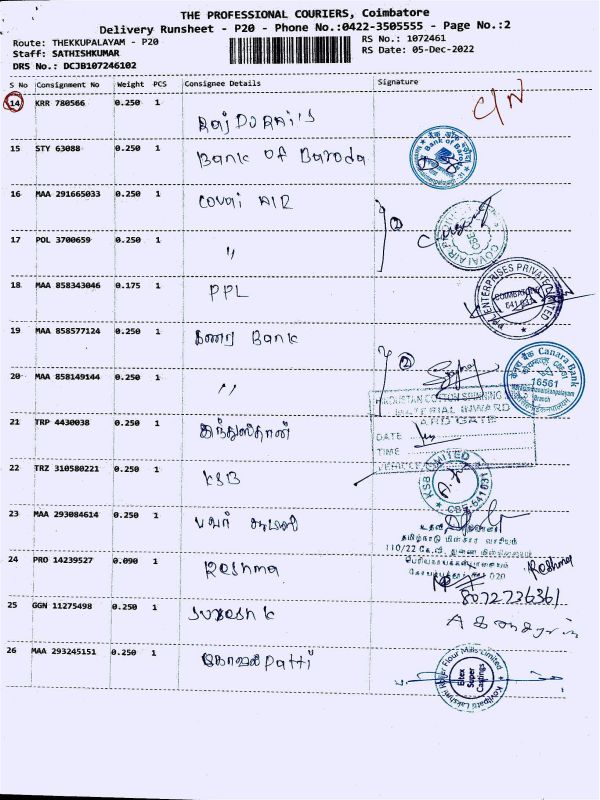 THE PROFESSIONAL COURIERS, Coimbatore
Delivery Runsheet - P20 - Phone No.:0422-3505555 - Page No.:2
Route: THEKKUPALAYAM - P20
RS No.: 1072461
Staff: SATHISHKUMAR
RS Date: 05-Dec-2022
DRS No.: DCJB107246102
S No Consignment No Weight PCS Consignee Details Signature
14 KRR 780566 0.250 1
C/N
15 STY 63088 0.250 1 Bank of Baroda
16 MAA 291665033 0.250 1 COVAI AIR
2
17 POL 3700659 0.250 1 "
18 MAA 858343046 0.175 1 PPL
ENTERPRISES PRIVATE LIMITED
COIMBATORE
641 031
19 MAA 858577124 0.250 1 கனரா Bank
2
Canara Bank
16561
Branch
20 MAA 858149144 0.250 1 "
HINDUSTAN COTTON SPINNING MILLS
MATERIAL INWARD
AND GATE
21 TRP 4430038 0.250 1 இந்துஸ்தான்
DATE
TIME
22 TRZ 310580221 0.250 1 KSB
KSB LIMITED
CBE 641 031
23 MAA 293084614 0.250 1
தமிழ்நாடு மின்சார வாரியம்
110/22 கே.வி. துணை மின்நிலையம்
24 PRO 14239527 0.090 1 Reshma
Reshma
8072736361
25 GGN 11275498 0.250 1 Suresh K
26 MAA 293245151 0.250 1 கோவில்Patti
Kovilpatti Lakshmi Roller Flour Mills Limited
Eltex
Super
Castings